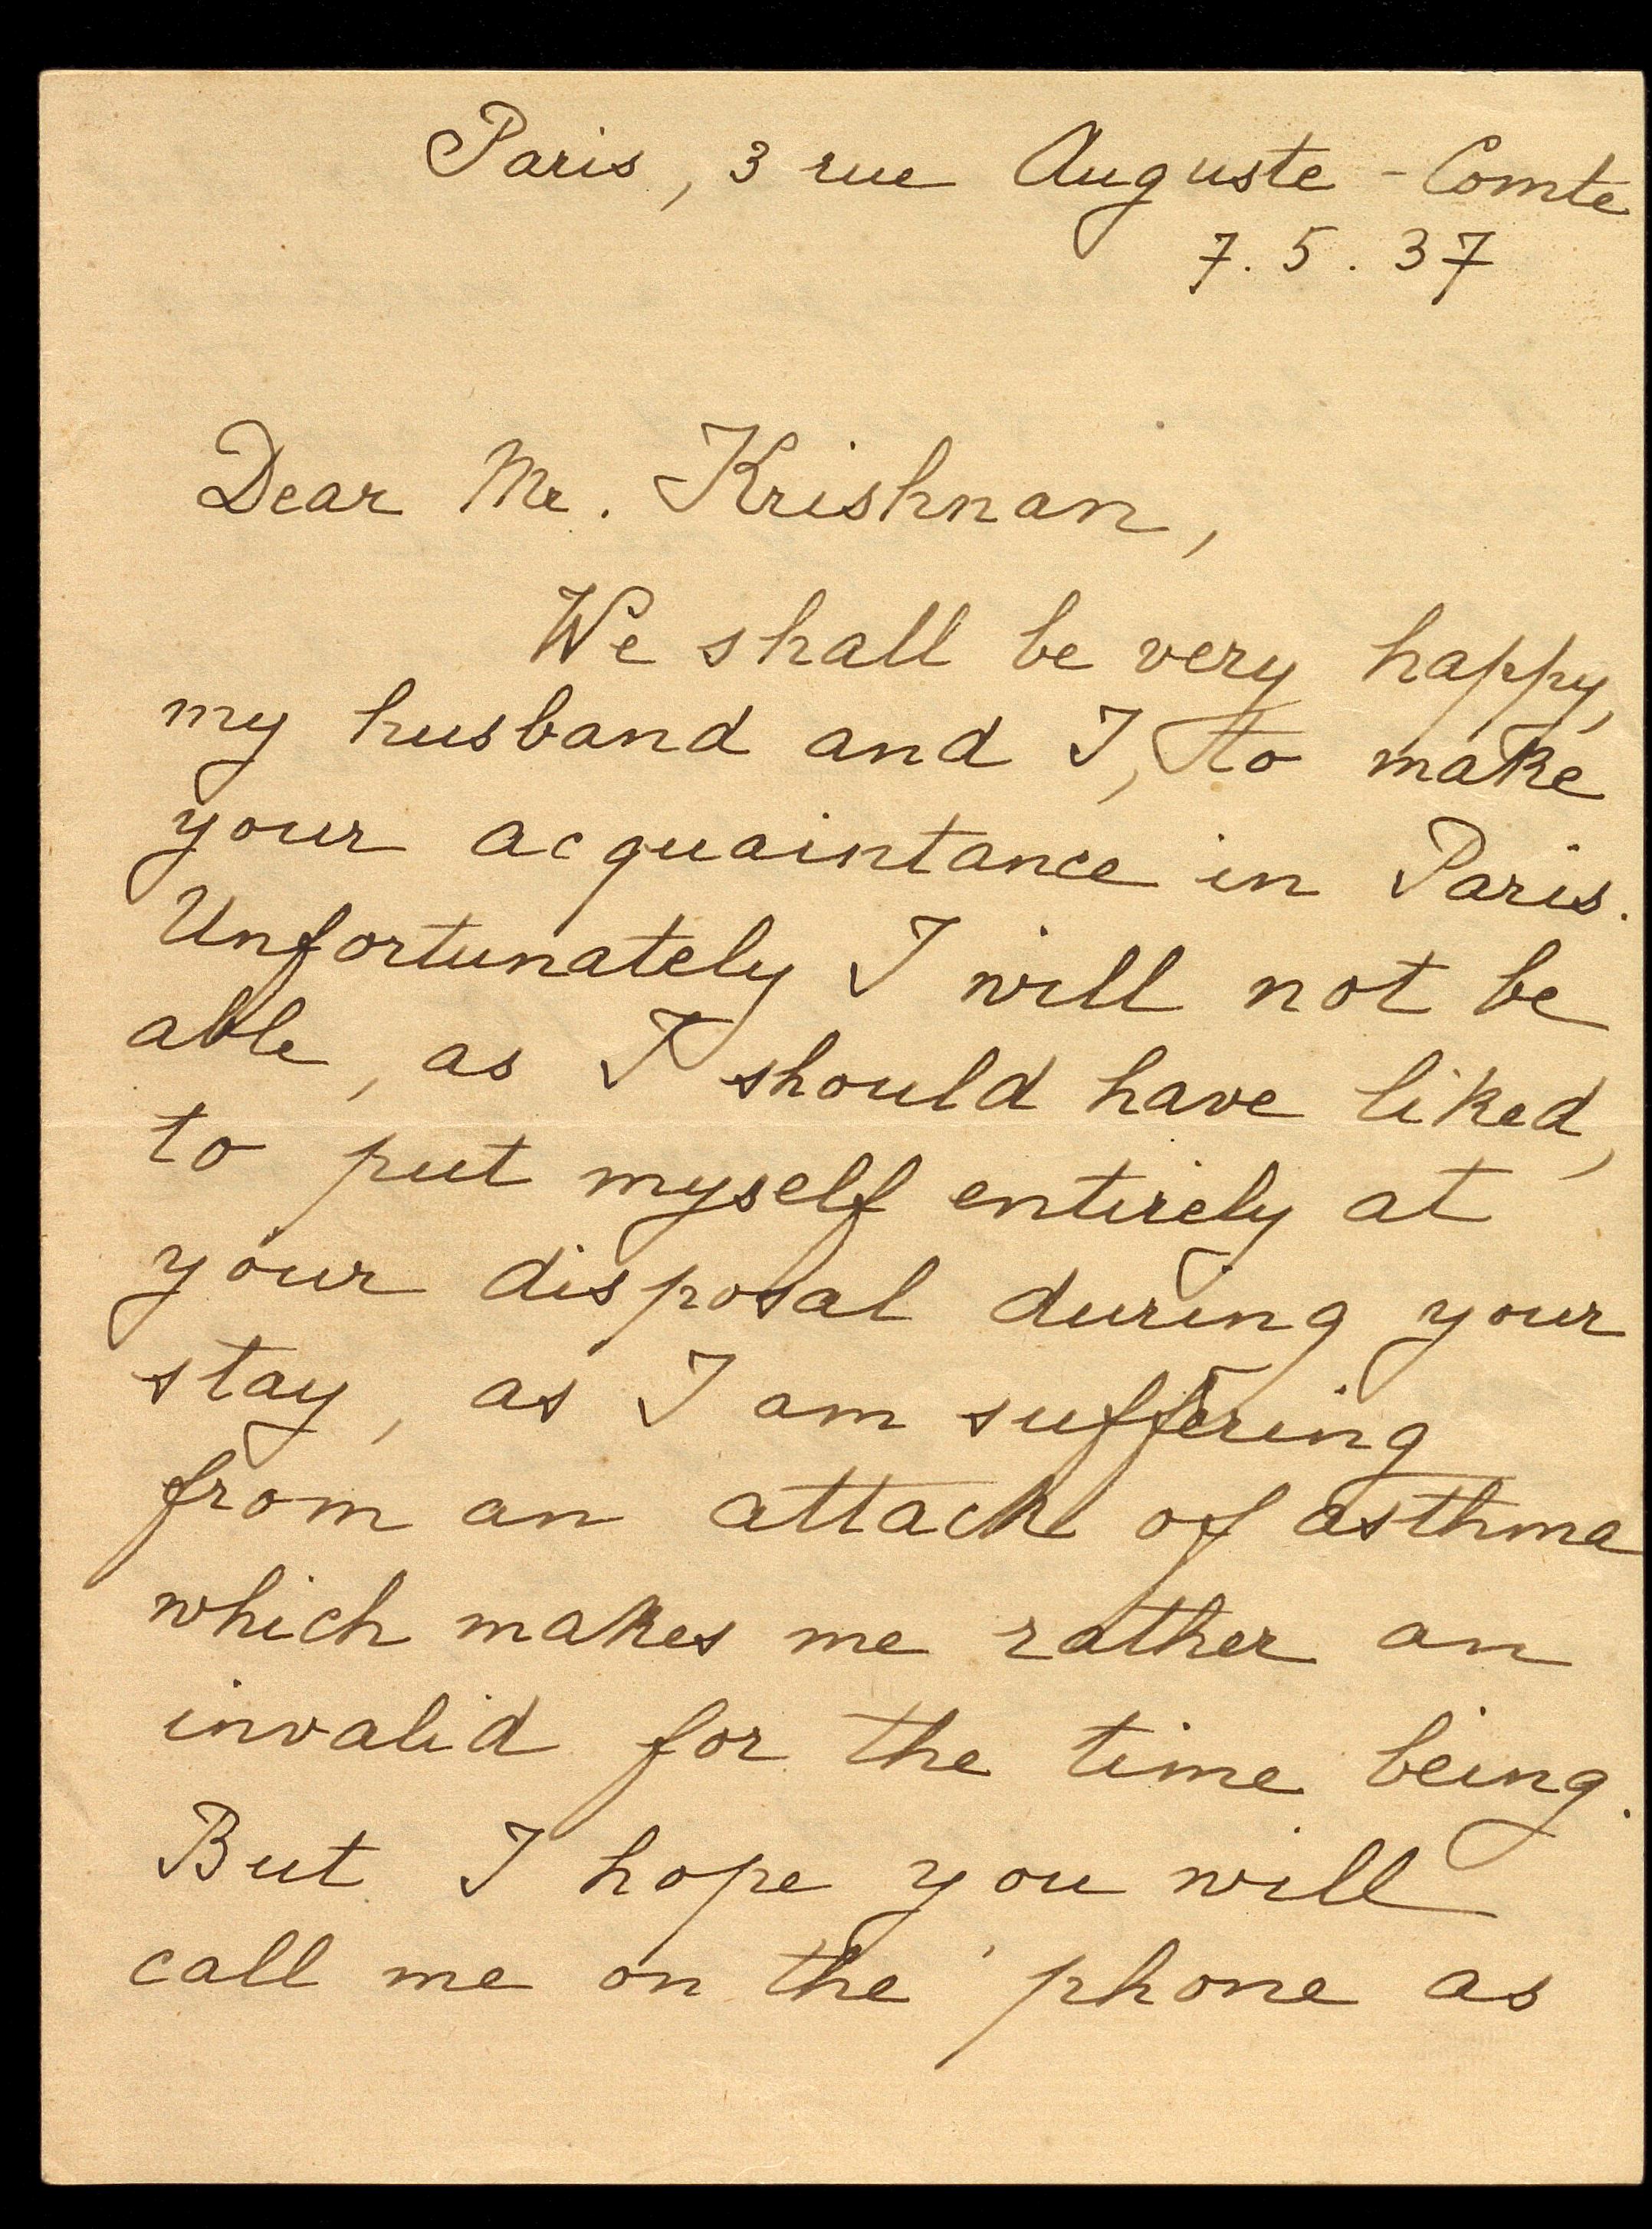 Paris, 3 rue Auguste-Comte
7.5.37
Dear Mr. Krishnan,
We shall be very happy,
my husband and I, to make
your acquaintance in Paris.
Unfortunately I will not be
able, as I should have liked,
to put myself entirely at
your disposal during your
stay, as I am suffering
from an attack of asthma
which makes me rather an
invalid for the time being.
But I hope you will
call me on the 'phone as